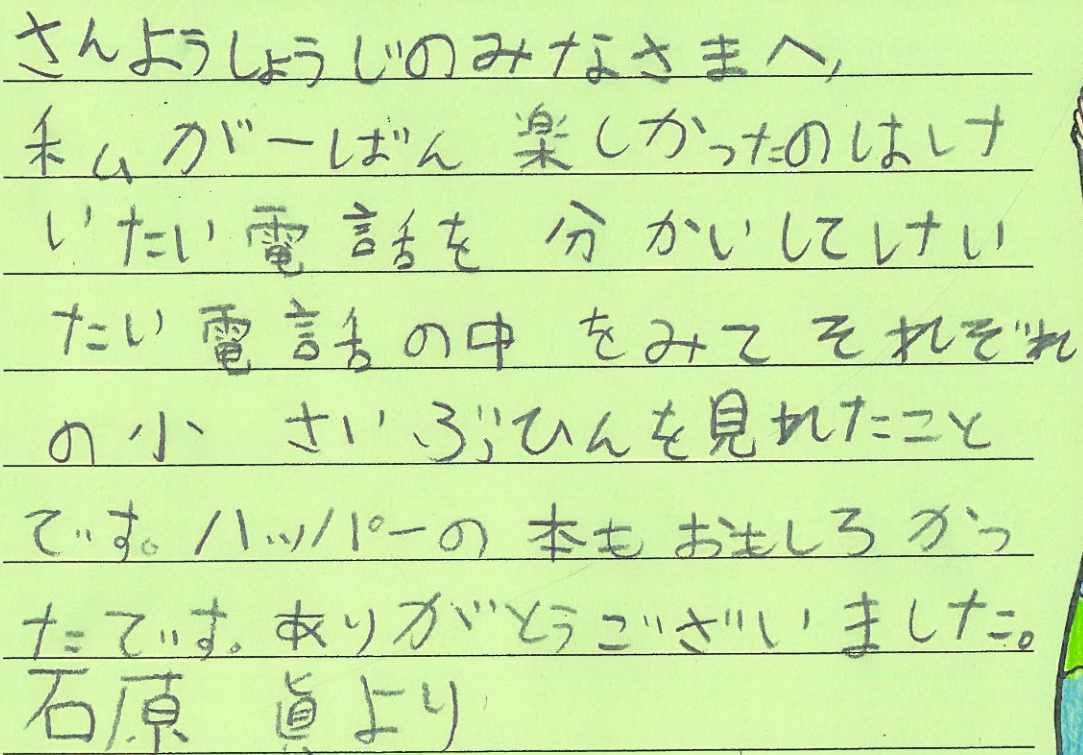 さんようしょうじのみなさまへ,
私が一ばん楽しかったのはけ
いたい電話を分かいしてけい
たい電話の中をみてそれぞれ
の小さいぶひんを見れたこと
です。ハッパーの本もおもしろかっ
たです。ありがとうございました。
石原 眞より